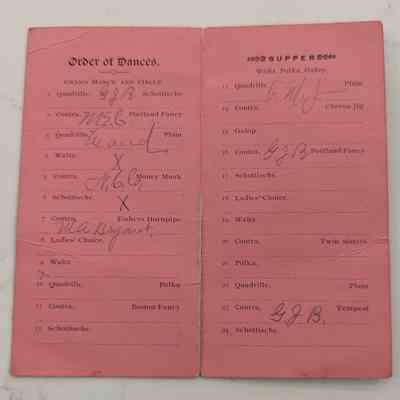 Order of Dances.
GRAND MARCH AND CIRCLE
1 Quadrille, G J B Schottische
2 Contra, Portland Fancy
3 Quadrille, Plain
4 Waltz X
5 Contra, Money Musk
6 Schottische, X
7 Contra, Fishers Hornpipe
M A Bryant.
8 Ladies' Choice,
9 Waltz
10 Quadrille, Polka
11 Contra, Boston Fancy
12 Schottische,
SUPPER
Waltz Polka Galop.
13 Quadrille, Plain
14 Contra, Chorus Jig
15 Galop
16 Contra, G J B Portland Fancy
17 Schottische.
18 Ladies' Choice,
19 Waltz
20 Contra, Twin Sisters
21 Polka,
22 Quadrille, Plain
23 Contra, G J B. Tempest
24 Schottische,